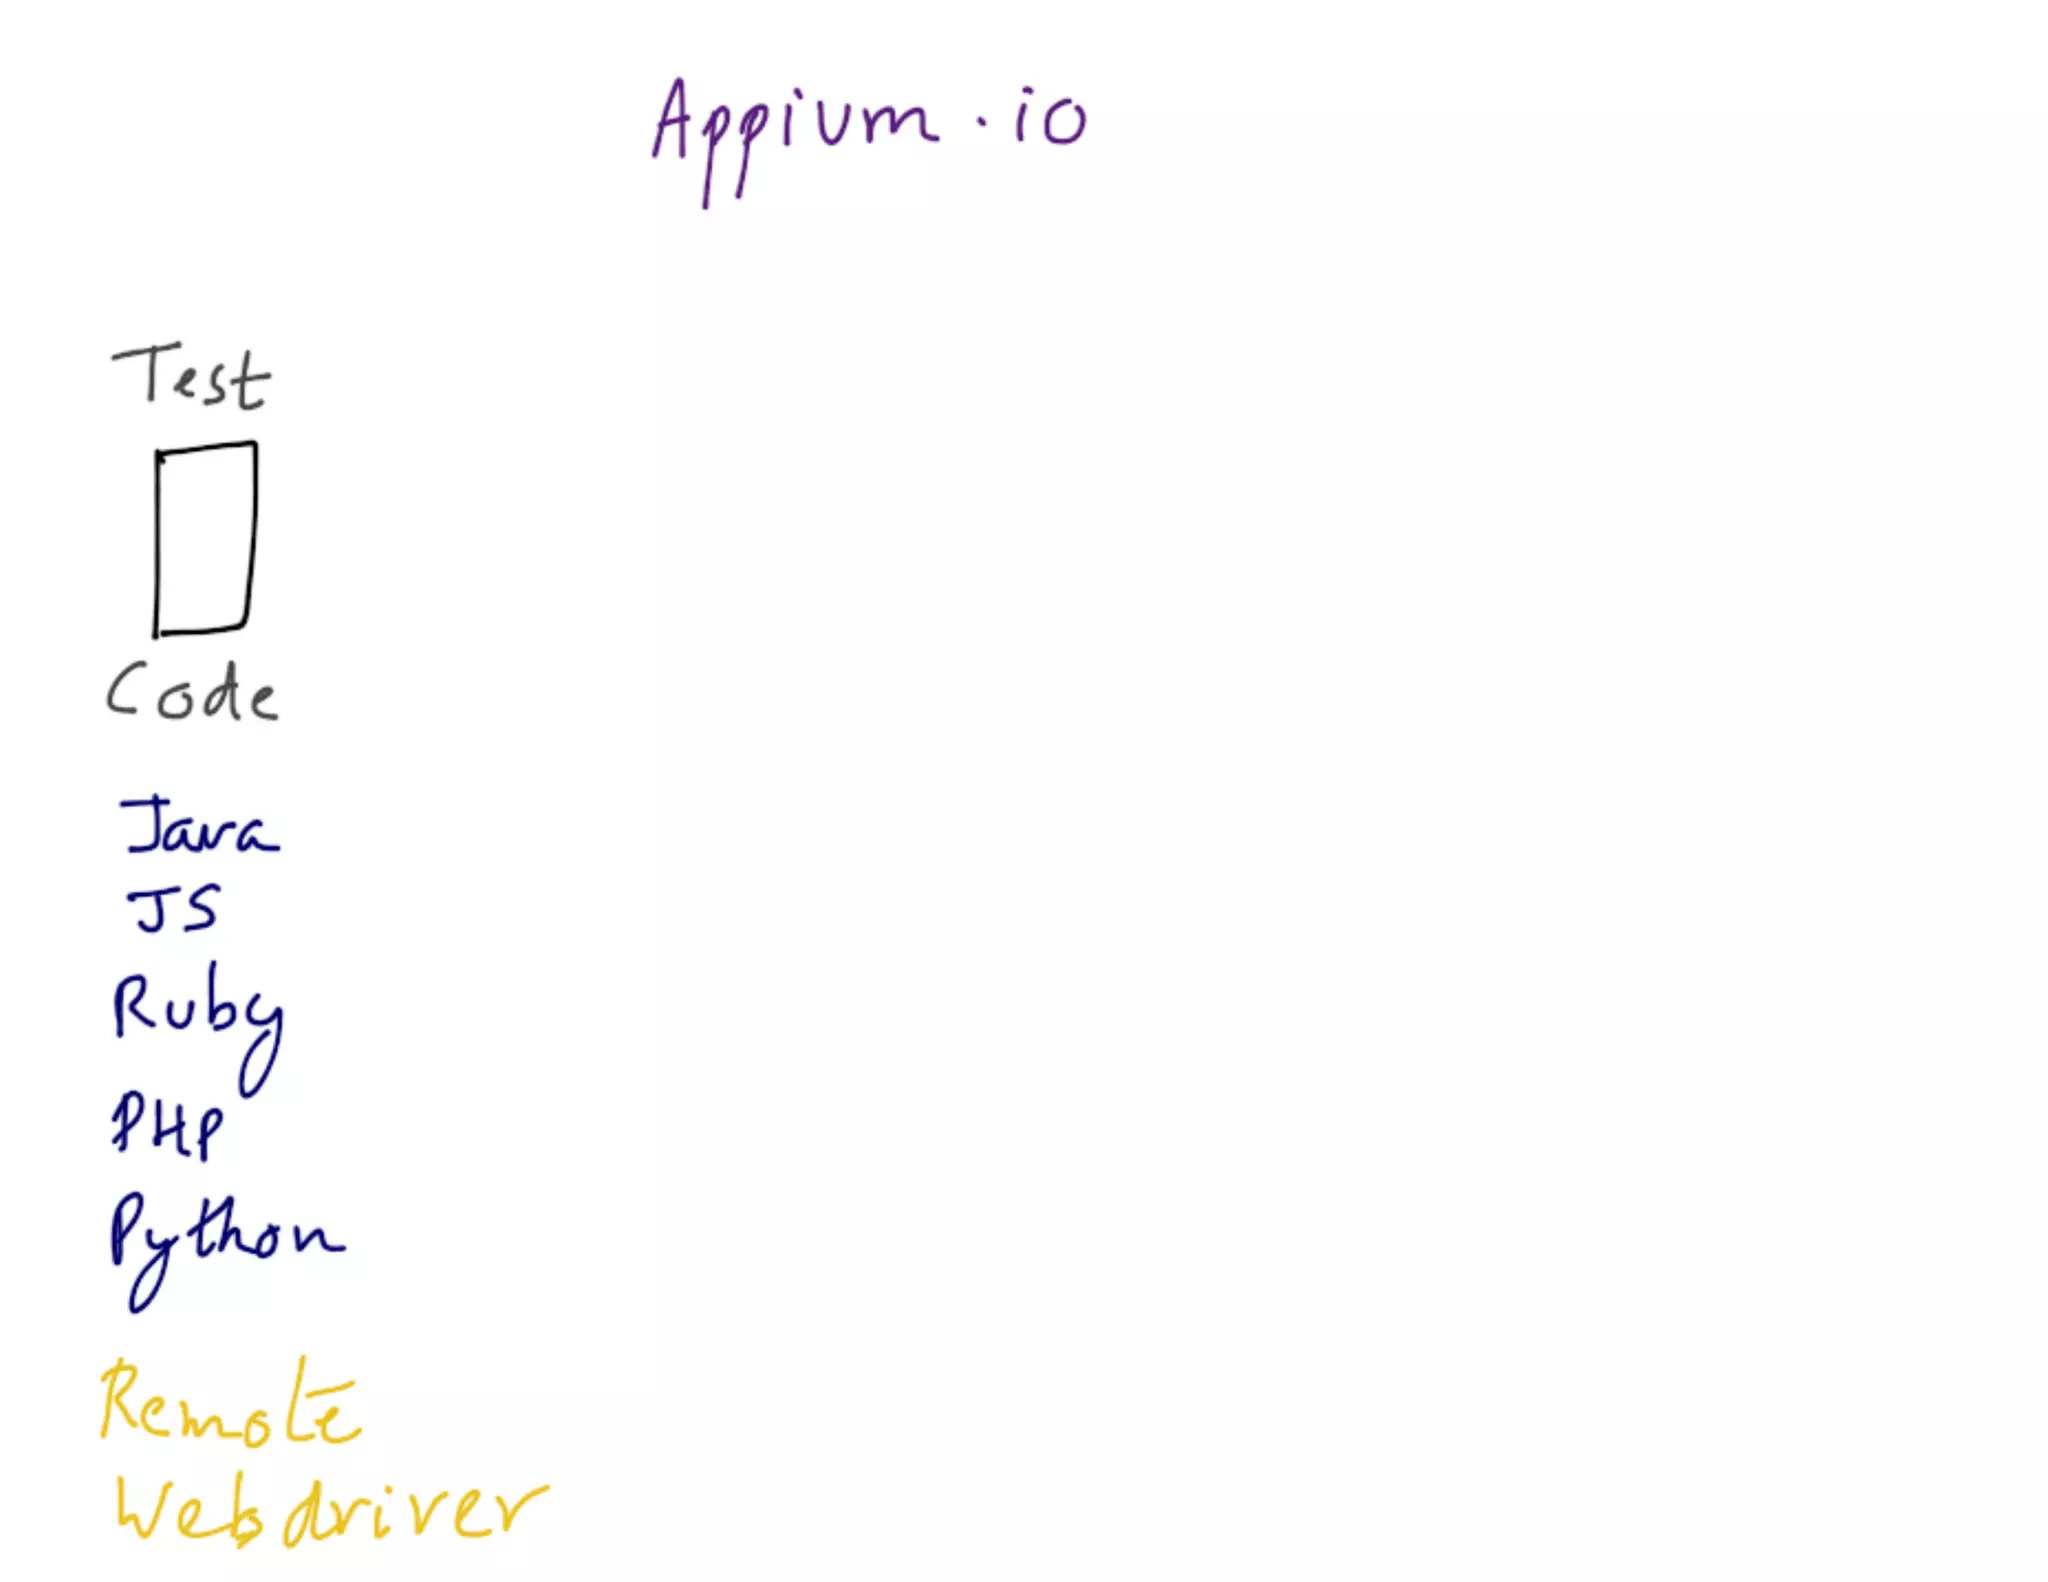 Appium.io
Test
Code
Java
JS
Ruby
PHP
Python
Remote
Webdriver